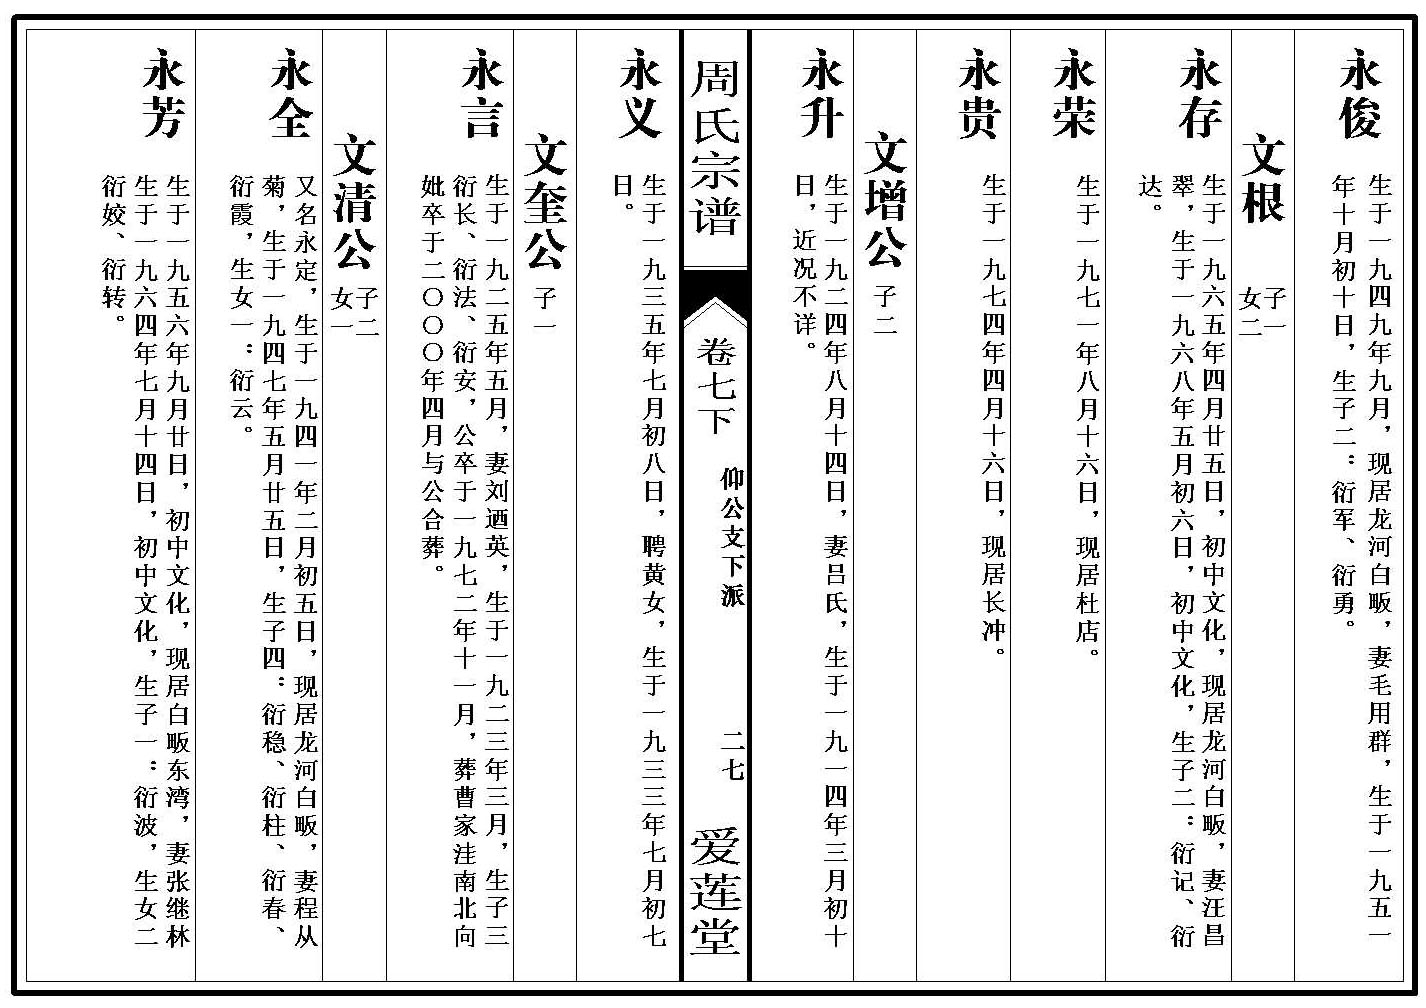 永俊
生于一九四九年九月，现居龙河白畈，妻毛用群，生于一九五一
年十月初十日，生子二：衍军、衍勇。
文根
子一
女二
永存
生于一九六五年四月廿五日，初中文化，现居龙河白畈，妻汪昌
翠，生于一九六八年五月初六日，初中文化，生子二：衍记、衍
达。
永荣
生于一九七一年八月十六日，现居杜店。
永贵
生于一九七四年四月十六日，现居长冲。
文增公
子二
永升
生于一九二四年八月十四日，妻吕氏，生于一九一四年三月初十
日，近况不详。
周氏宗谱
卷七下
仰公支下派
二七
爱莲堂
永义
生于一九三五年七月初八日，聘黄女，生于一九三三年七月初七
日。
文奎公
子一
永言
生于一九二五年五月，妻刘迺英，生于一九二三年三月，生子三
衍长、衍法、衍安，公卒于一九七二年十一月，葬曹家洼南北向
妣卒于二〇〇〇年四月与公合葬。
文清公
子二
女一
永全
又名永定，生于一九四一年二月初五日，现居龙河白畈，妻程从
菊，生于一九四七年五月廿五日，生子四：衍稳、衍柱、衍春、
衍霞，生女一：衍云。
永芳
生于一九五六年九月廿日，初中文化，现居白畈东湾，妻张继林
生于一九六四年七月十四日，初中文化，生子一：衍波，生女二
衍姣、衍转。